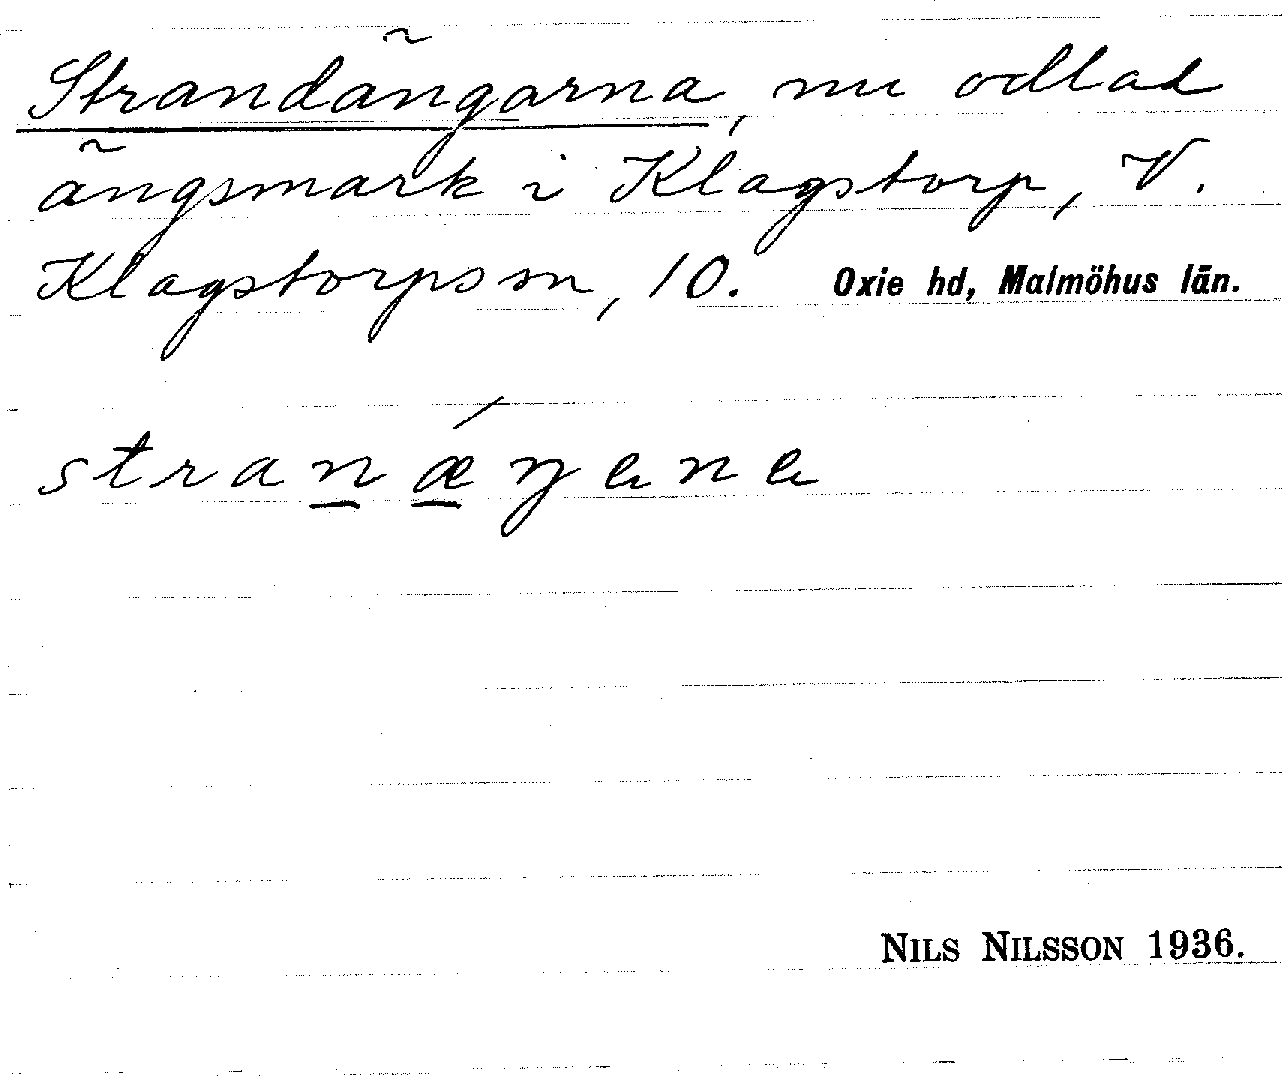 Strandängarna, nu odlad
ängsmark i Klagstorp, V.
Klagstorps sn, 10. Oxie hd, Malmöhus län.
stranǽŋene
NILS NILSSON 1936.